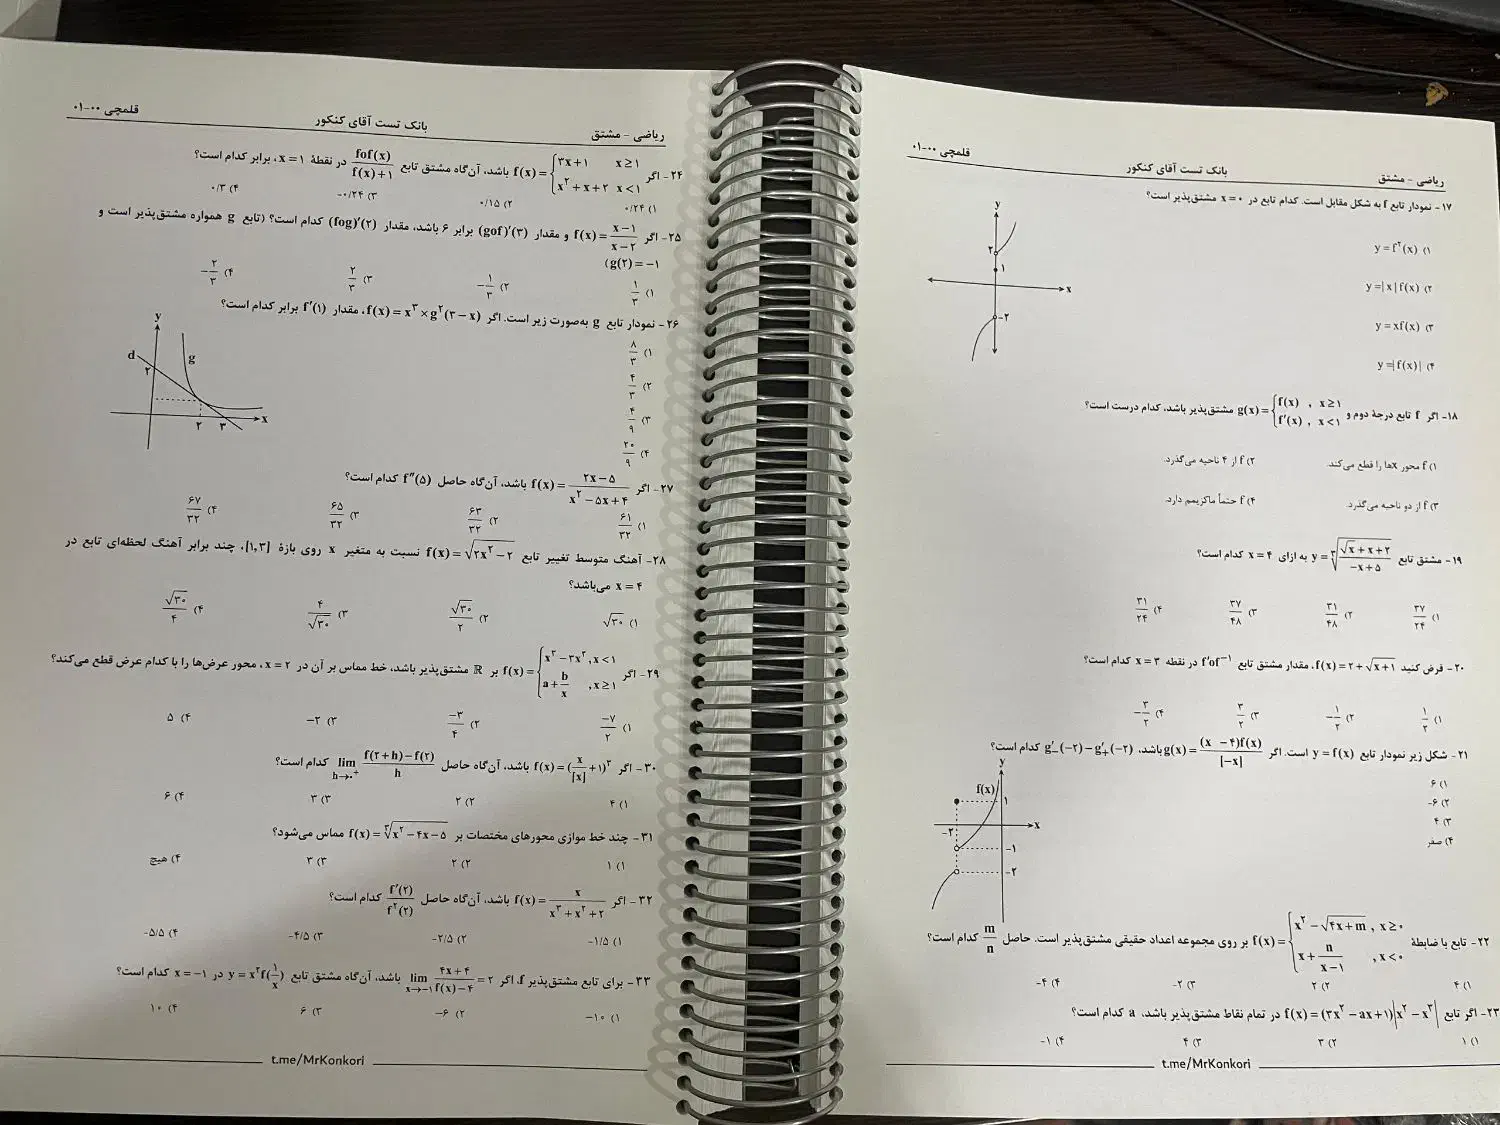 ریاضی - مشتق
بانک تست آقای کنکور
قلمچی ۰۰-۰۱
۱۷- نمودار تابع f به شکل مقابل است. کدام تابع در x = ۰ مشتق‌پذیر است؟
۱) y = f²(x)
۲) y = |x| f(x)
۳) y = xf(x)
۴) y = |f(x)|
y
۲
۱
x
-۲
۱۸- اگر f تابع درجهٔ دوم و g(x) = { f(x) , x ≥ ۱ ; f′(x) , x < ۱ مشتق‌پذیر باشد، کدام درست است؟
۱) f محور xها را قطع می‌کند.
۲) f از ۴ ناحیه می‌گذرد.
۳) f از دو ناحیه می‌گذرد.
۴) f حتماً ماکزیمم دارد.
۱۹- مشتق تابع y = ∛((√x + x + ۲)/(-x + ۵)) به ازای x = ۴ کدام است؟
۱) ۳۷/۲۴
۲) ۳۱/۴۸
۳) ۳۷/۴۸
۴) ۳۱/۲۴
۲۰- فرض کنید f(x) = ۲ + √(x+۱)، مقدار مشتق تابع f′of⁻¹ در نقطه x = ۳ کدام است؟
۱) ۱/۲
۲) -۱/۲
۳) ۳/۲
۴) -۳/۲
۲۱- شکل زیر نمودار تابع y = f(x) است. اگر g(x) = (x - ۴)f(x)/[-x] باشد، g′₋(-۲) - g′₊(-۲) کدام است؟
۱) ۶
۲) ۶-
۳) ۴
۴) صفر
y
f(x)
۱
-۲
x
-۱
-۲
۲۲- تابع با ضابطهٔ f(x) = { x² - √(۴x + m) , x ≥ ۰ ; x + n/(x - ۱) , x < ۰ بر روی مجموعه اعداد حقیقی مشتق‌پذیر است. حاصل m/n کدام است؟
۱) ۴
۲) ۲
۳) ۲-
۴) ۴-
۲۳- اگر تابع f(x) = (۳x² - ax + ۱)|x² - x³| در تمام نقاط مشتق‌پذیر باشد، a کدام است؟
۱) ۱
۲) ۳
۳) ۴
۴) ۱-
t.me/MrKonkori
ریاضی - مشتق
بانک تست آقای کنکور
قلمچی ۰۰-۰۱
۲۴- اگر f(x) = { ۳x + ۱ x ≥ ۱ ; x² + x + ۲ x < ۱ باشد، آن‌گاه مشتق تابع fof(x)/(f(x)+۱) در نقطهٔ x = ۱، برابر کدام است؟
۱) ۰/۲۴
۲) ۰/۱۵
۳) -۰/۲۴
۴) ۰/۳
۲۵- اگر f(x) = (x - ۱)/(x - ۲) و مقدار (gof)′(۳) برابر ۶ باشد، مقدار (fog)′(۲) کدام است؟ (تابع g همواره مشتق‌پذیر است و
g(۲) = -۱)
۱) ۱/۳
۲) -۱/۳
۳) ۲/۳
۴) -۲/۳
۲۶- نمودار تابع g به‌صورت زیر است. اگر f(x) = x³ × g²(۳ - x)، مقدار f′(۱) برابر کدام است؟
۱) ۸/۳
۲) ۴/۳
۳) ۴/۹
۴) ۲۰/۹
y
d
g
۲
x
۲
۳
۲۷- اگر f(x) = (۲x - ۵)/(x² - ۵x + ۴) باشد، آن‌گاه حاصل f″(۵) کدام است؟
۱) ۶۱/۳۲
۲) ۶۳/۳۲
۳) ۶۵/۳۲
۴) ۶۷/۳۲
۲۸- آهنگ متوسط تغییر تابع f(x) = √(۲x² - ۲) نسبت به متغیر x روی بازهٔ [۱,۳]، چند برابر آهنگ لحظه‌ای تابع در
x = ۴ می‌باشد؟
۱) √۳۰
۲) √۳۰/۲
۳) ۴/√۳۰
۴) √۳۰/۴
۲۹- اگر f(x) = { x³ - ۳x² , x < ۱ ; a + b/x , x ≥ ۱ بر ℝ مشتق‌پذیر باشد، خط مماس بر آن در x = ۲، محور عرض‌ها را با کدام عرض قطع می‌کند؟
۱) -۷/۲
۲) -۳/۴
۳) -۲
۴) ۵
۳۰- اگر f(x) = (x/[x] + ۱)² باشد، آن‌گاه حاصل lim h→۰⁺ (f(۲+h) - f(۲))/h کدام است؟
۱) ۴
۲) ۲
۳) ۳
۴) ۶
۳۱- چند خط موازی محورهای مختصات بر f(x) = ∛(x² - ۴x - ۵) مماس می‌شود؟
۱) ۱
۲) ۲
۳) ۳
۴) هیچ
۳۲- اگر f(x) = x/(x³ + x² + ۲) باشد، آن‌گاه حاصل f′(۲)/f²(۲) کدام است؟
۱) -۱/۵
۲) -۲/۵
۳) -۴/۵
۴) -۵/۵
۳۳- برای تابع مشتق‌پذیر f، اگر lim x→-۱ (۴x + ۴)/(f(x) - ۴) = ۲ باشد، آن‌گاه مشتق تابع y = x²f(۱/x) در x = -۱ کدام است؟
۱) -۱۰
۲) -۶
۳) ۶
۴) ۱۰
t.me/MrKonkori